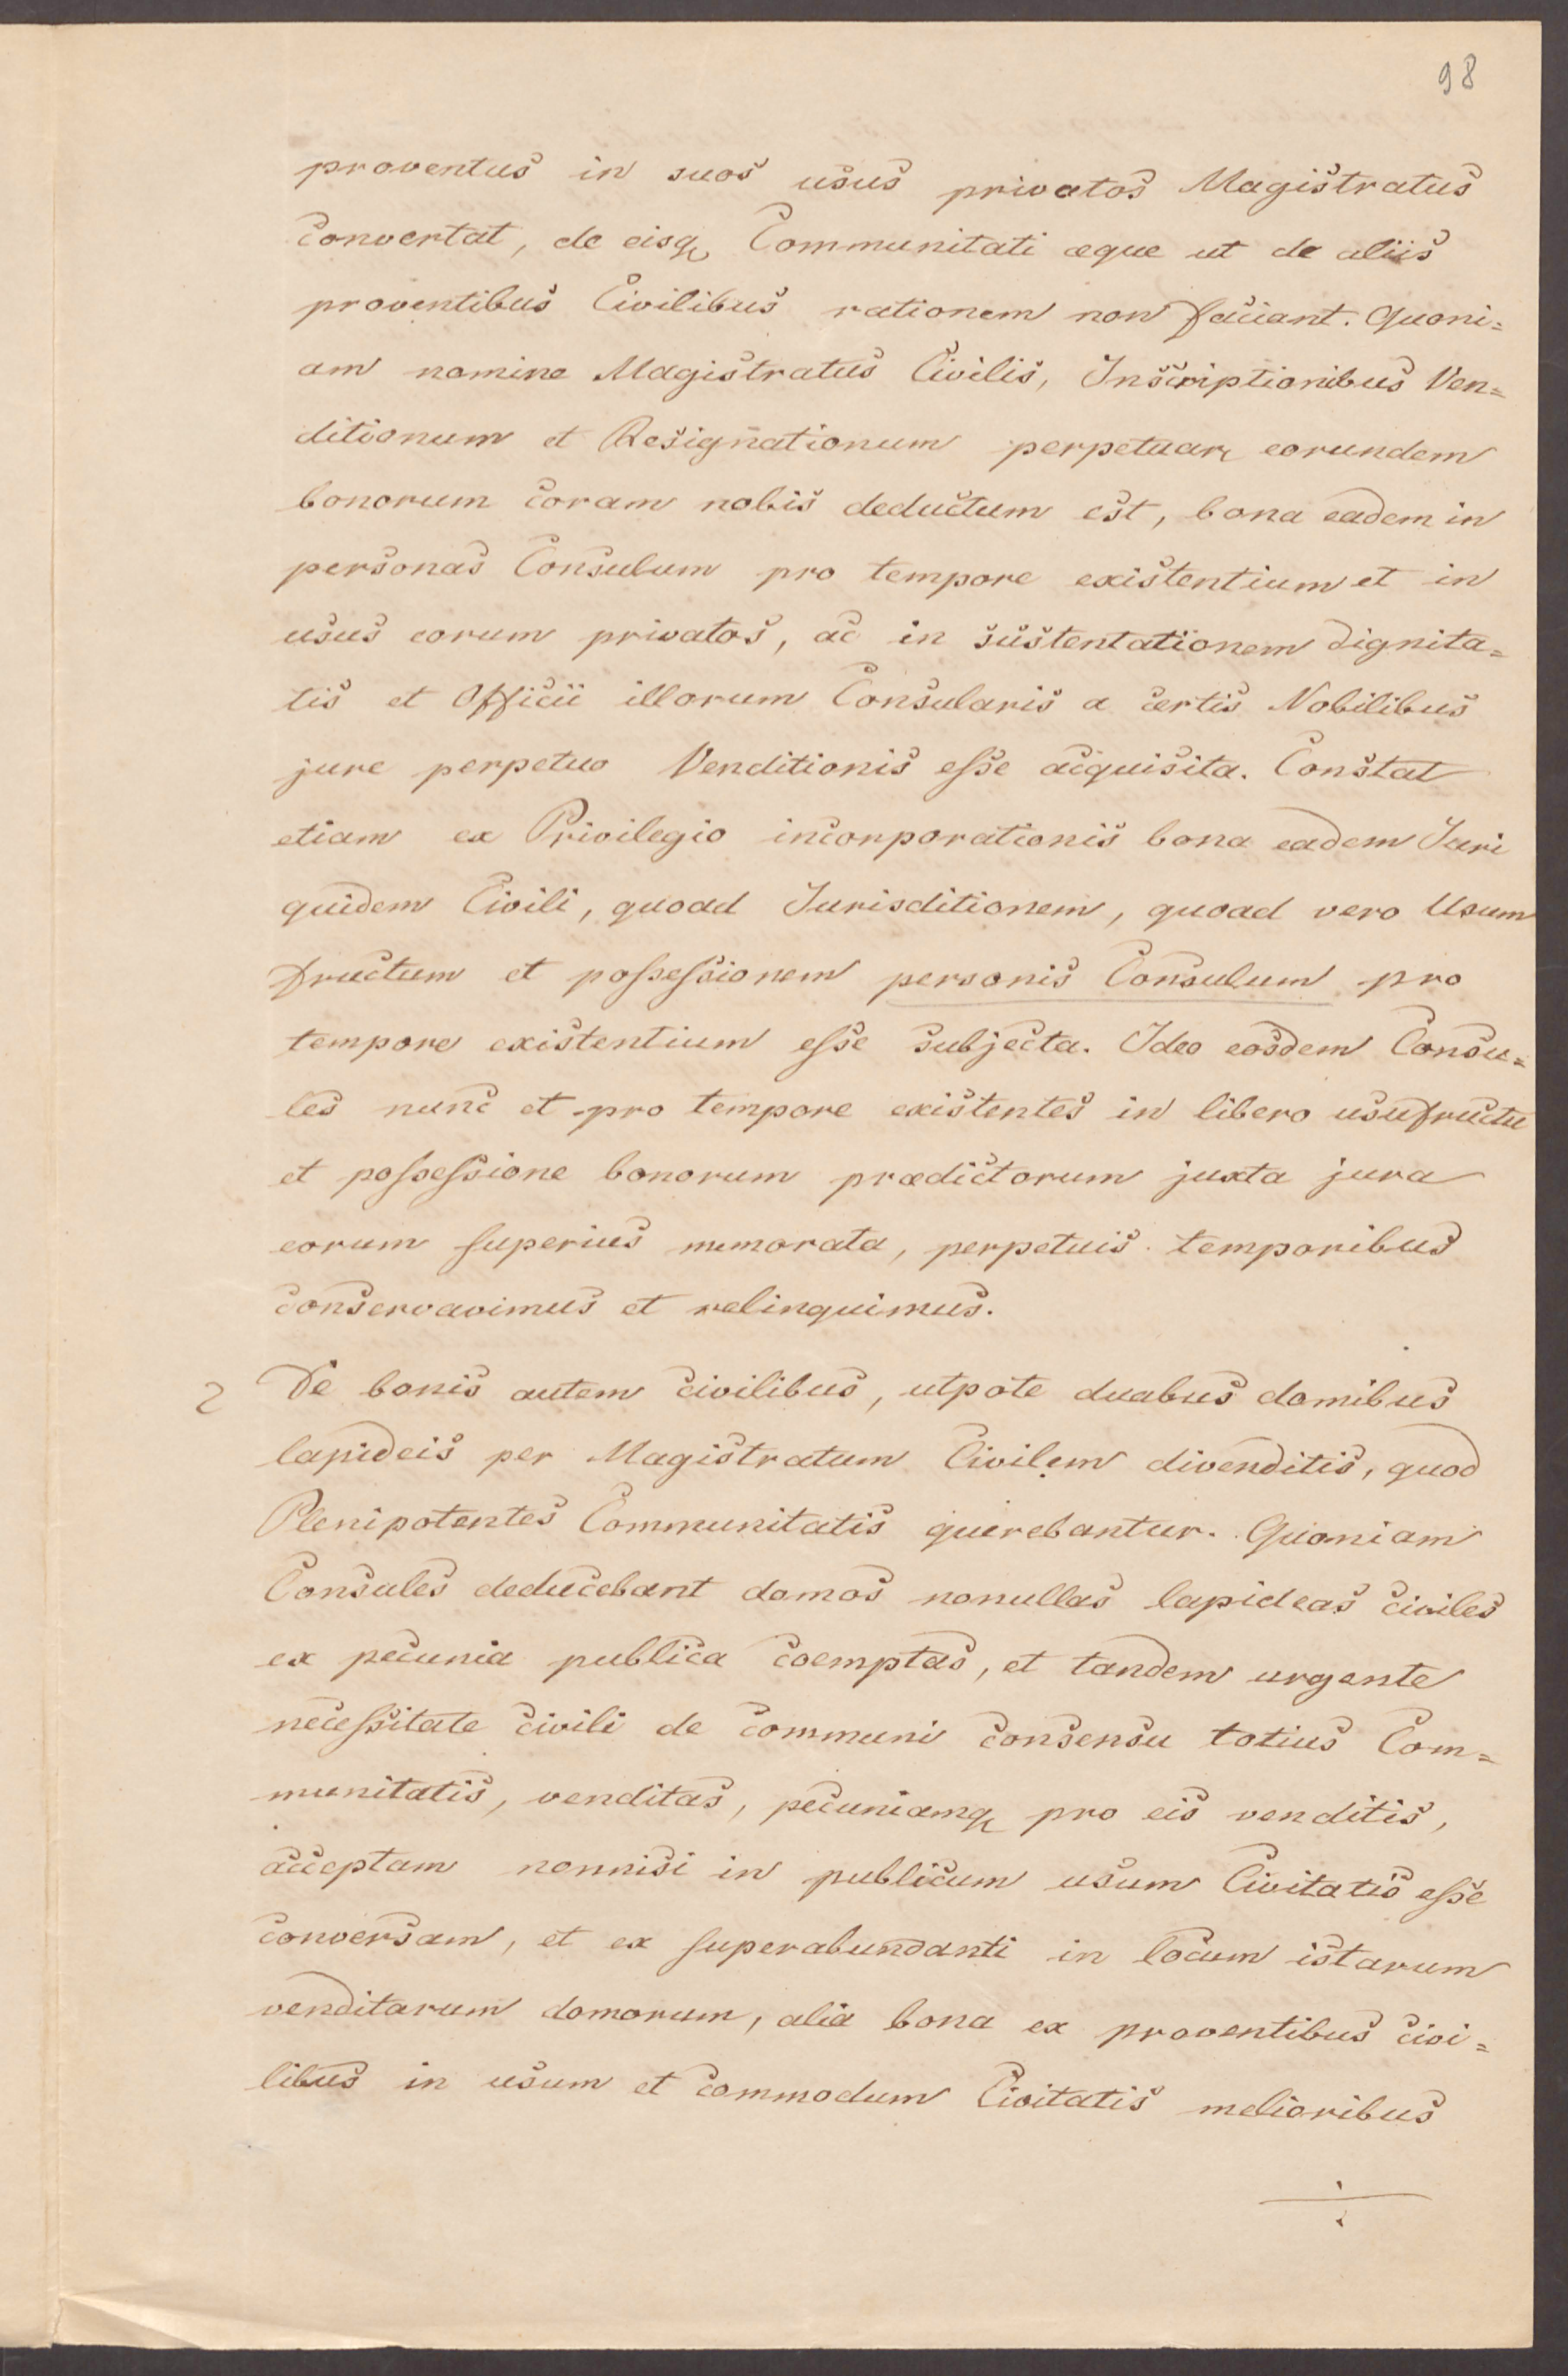 98
proventus in suos usus privatos Magistratus
convertat, de eisq, Communitati æque ut de aliis
proventibus Civilibus rationem non faciant. Quoni=
am nomine Magistratus Civilis, Inscriptionibus Ven=
ditionum et Resignationum perpetuar, eorundem
bonorum coram nobis deductum est, bona eadem in
personas Consulum pro tempore existentium et in
usus eorum privatos, ac in sustentationem dignita=
tis et Officii illorum Consularis a certis Nobilibus
jure perpetuo Venditionis esse acquisita. Constat
etiam ex Privilegio incorporationis bona eadem Juri
quidem Civili, quoad Jurisditionem, quoad vero Usum
fructum et possessionem personis Consulum pro
tempore existentium esse subjecta. Ideo eosdem Consu=
les nunc et pro tempore existentes in libero usufructu
et possessione bonorum prædictorum juxta jura
eorum superius memorata, perpetuis temporibus
conservavimus et relinquimus.
2 De bonis autem civilibus, utpote duabus domibus
lapideis per Magistratum Civilem divenditis, quod
Plenipotentes Communitatis querebantur. Quoniam
Consules deducebant domos nonullas lapideas civiles
ex pecunia publica coemptas, et tandem urgente
necessitate civili de communi consensu totius Com=
munitatis, venditas, pecuniamq, pro eis venditis,
acceptam nonnisi in publicum usum Civitatis esse
conversam, et ex superabundanti in locum istarum
venditarum domorum, alia bona ex proventibus civi=
libus in usum et commodum Civitatis melioribus